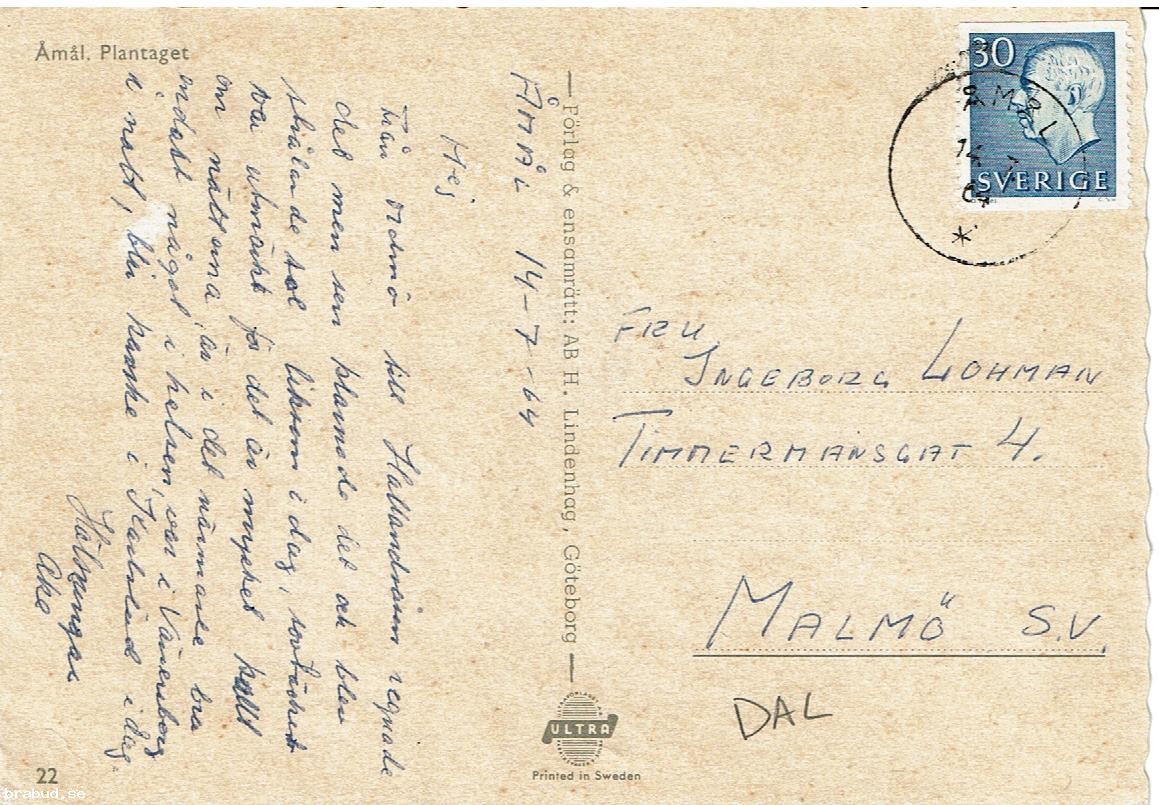 Åmål. Plantaget
ÅMÅL 14-7-64
Hej
Från till Hallandsåsen regnade
det men sen klarnade det och blev
strålande sol liksom i dag,
var utmärkt för det är mycket kallt
om nätterna, är i det närmare bra
endast något i halsen, var i Vänersborg
i natt, blir kanske i Karlstad i dag.
Hälsningar
Åke
Förlag & ensamrätt: AB H. Lindenhag, Göteborg
ULTRA
Printed in Sweden
22
brabud.se
30
SVERIGE
ÅMÅL
14
64
FRU
INGEBORG LOHMAN
TIMMERMANSGAT 4.
MALMÖ S.V.
DAL